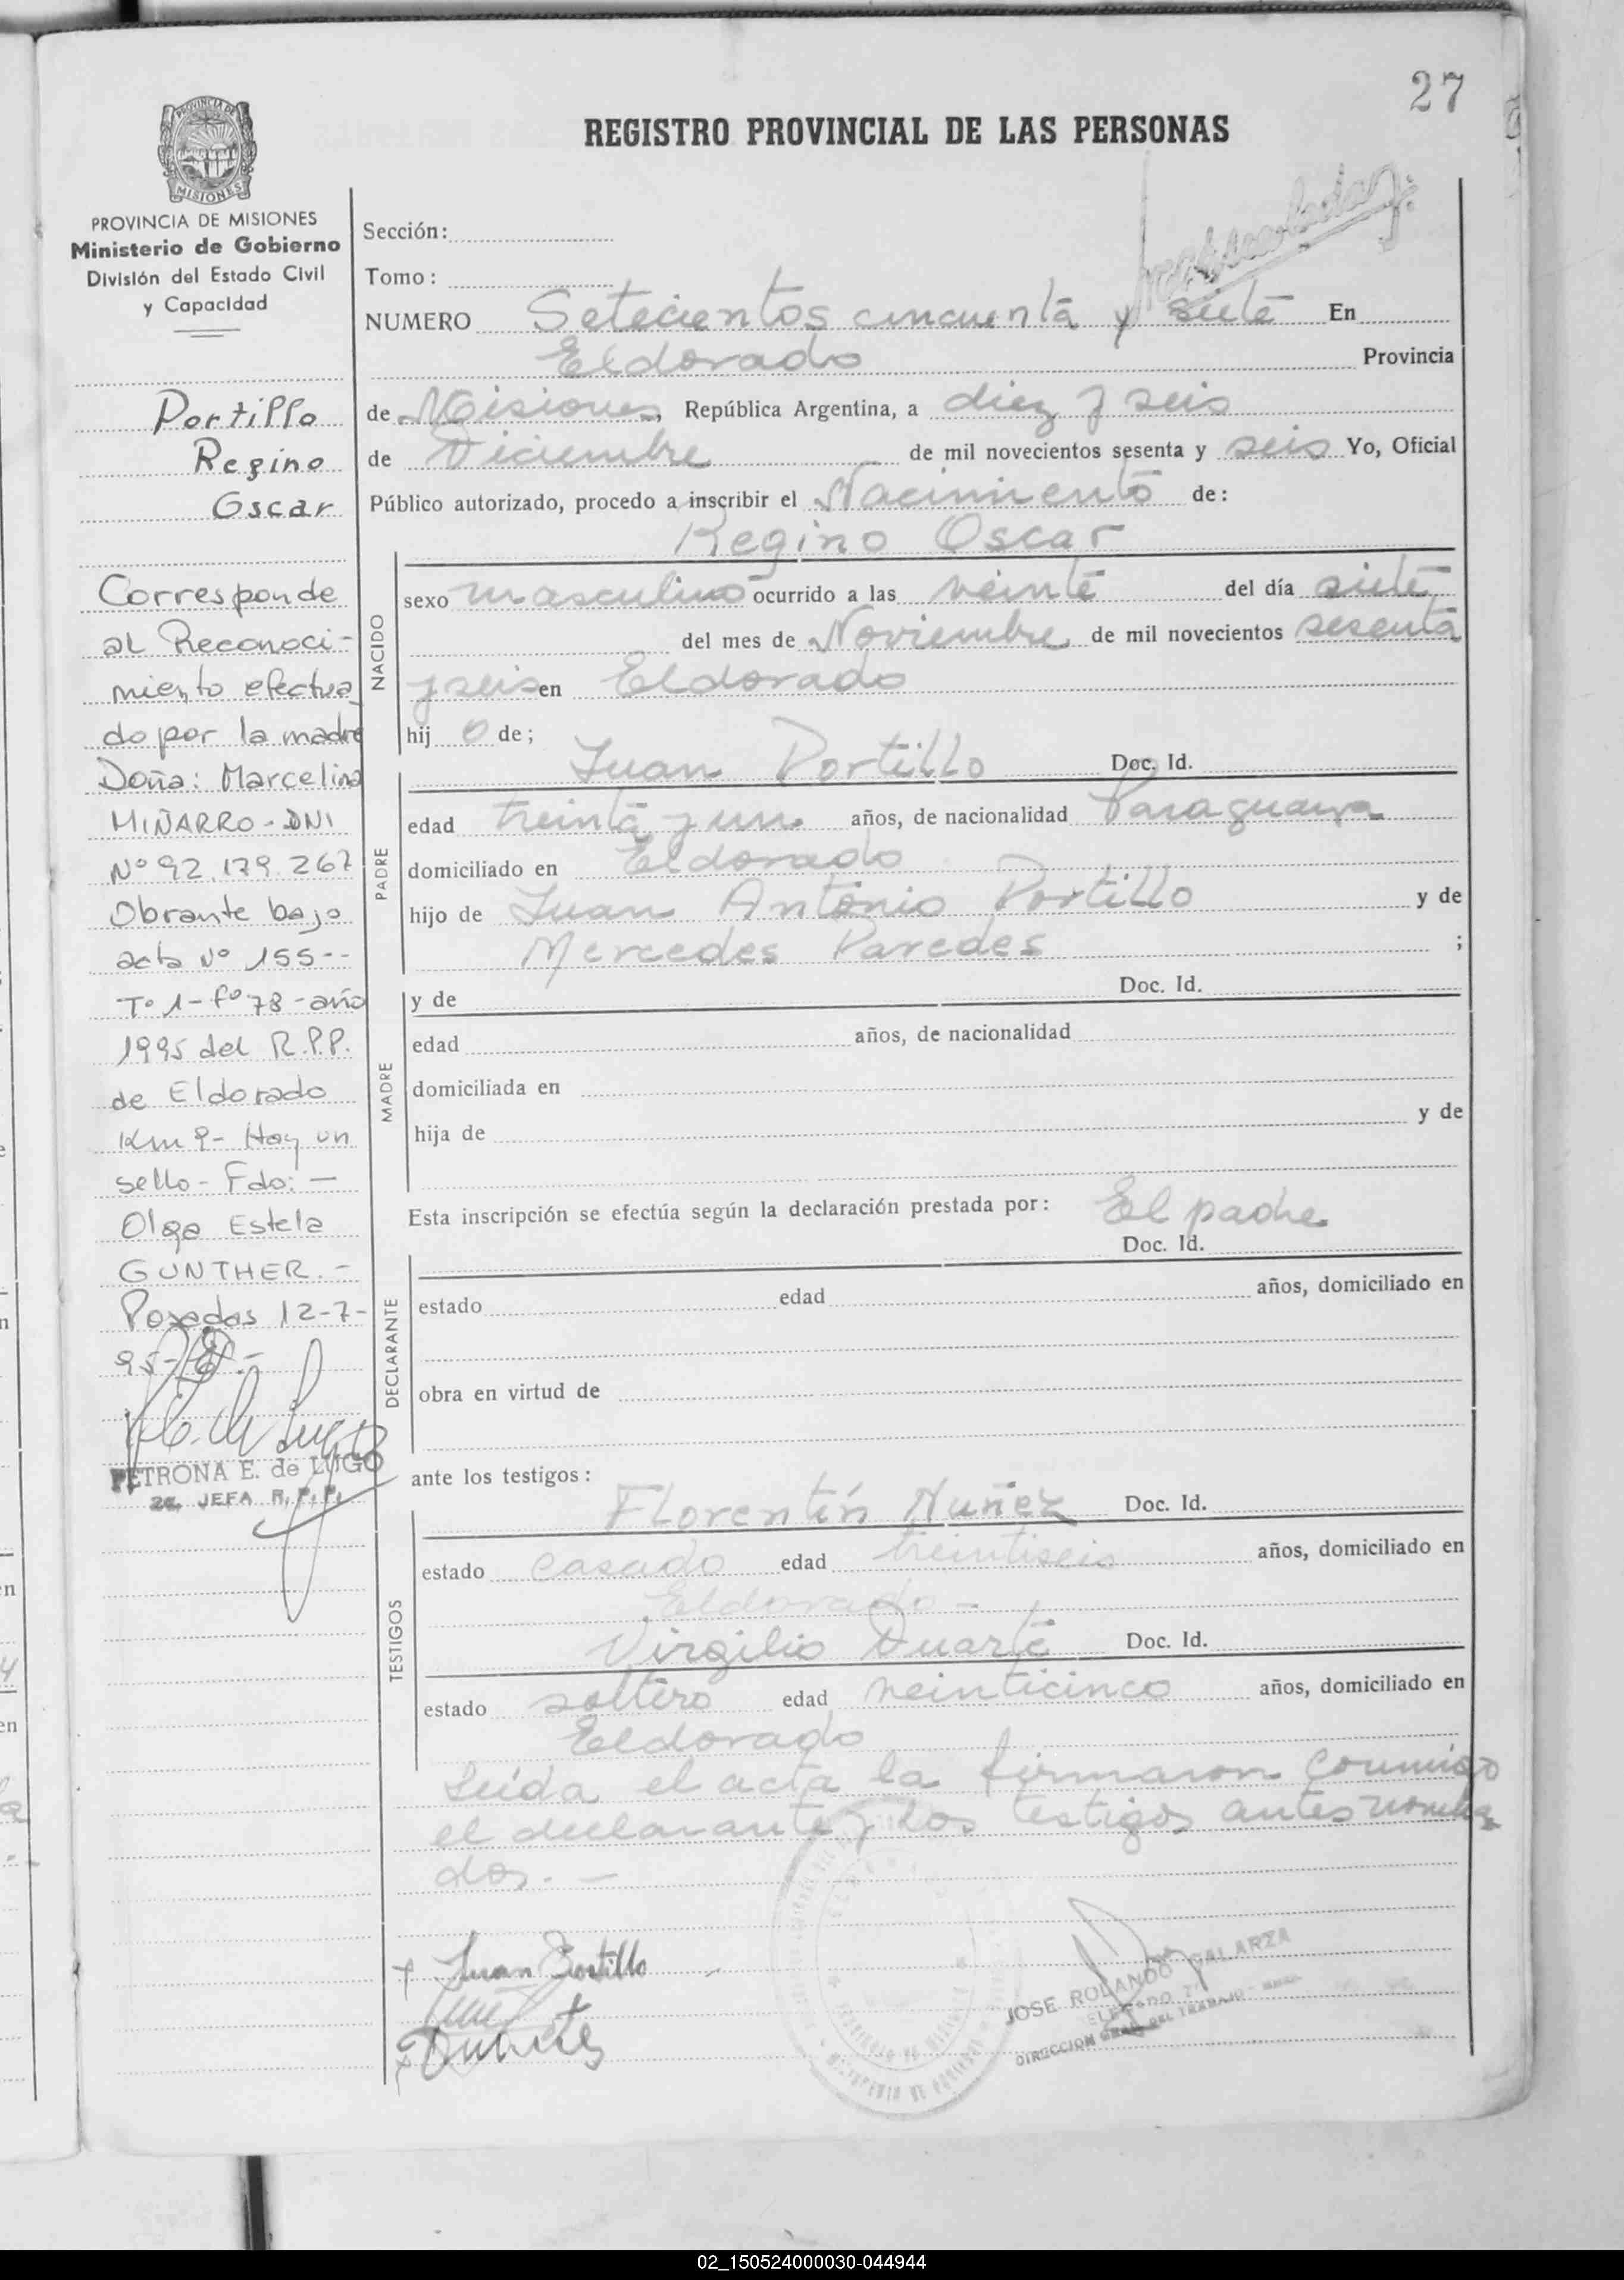 27
REGISTRO PROVINCIAL DE LAS PERSONAS
PROVINCIA DE
MISIONES
PROVINCIA DE MISIONES
Ministerio de Gobierno
División del Estado Civil
y Capacidad
Portillo
Regino
Oscar
Corresponde
al Reconoci-
miento efectua
do por la madre
Doña: Marcelina
MIÑARRO - DNI
Nº 92.179.267
Obrante bajo
acta Nº 155--
Tº 1 - fº 78 - año
1995 del R.P.P.
de Eldorado
Km 9 - Hay un
sello - Fdo: -
Olga Estela
GUNTHER. -
Posadas 12-7-
95-
PETRONA E. de LUGO
JEFA R.P.P.
Sección:
Tomo:
NUMERO Setecientos cincuenta y siete En
Eldorado Provincia
de Misiones, República Argentina, a diez y seis
de Diciembre de mil novecientos sesenta y seis Yo, Oficial
Público autorizado, procedo a inscribir el Nacimiento de:
Regino Oscar
NACIDO
sexo masculino ocurrido a las veinte del día siete
del mes de Noviembre de mil novecientos sesenta
y seis en Eldorado
hij o de;
Juan Portillo Doc. Id.
PADRE
edad treinta y un años, de nacionalidad Paraguaya
domiciliado en Eldorado
hijo de Juan Antonio Portillo y de
Mercedes Paredes ;
MADRE
y de Doc. Id.
edad años, de nacionalidad
domiciliada en
hija de y de
Esta inscripción se efectúa según la declaración prestada por: El padre
Doc. Id.
DECLARANTE
estado edad años, domiciliado en
obra en virtud de
ante los testigos:
Florentín Nuñez Doc. Id.
TESTIGOS
estado casado edad treintiseis años, domiciliado en
Eldorado -
Virgilio Duarte Doc. Id.
estado soltero edad veinticinco años, domiciliado en
Eldorado
Leída el acta la firmaron conmigo
el declarante y los testigos antes nombra
dos. -
+ Juan Portillo
Duarte
JOSE ROLANDO GALARZA
DIRECCION GRAL DEL TRABAJO
02_150524000030-044944